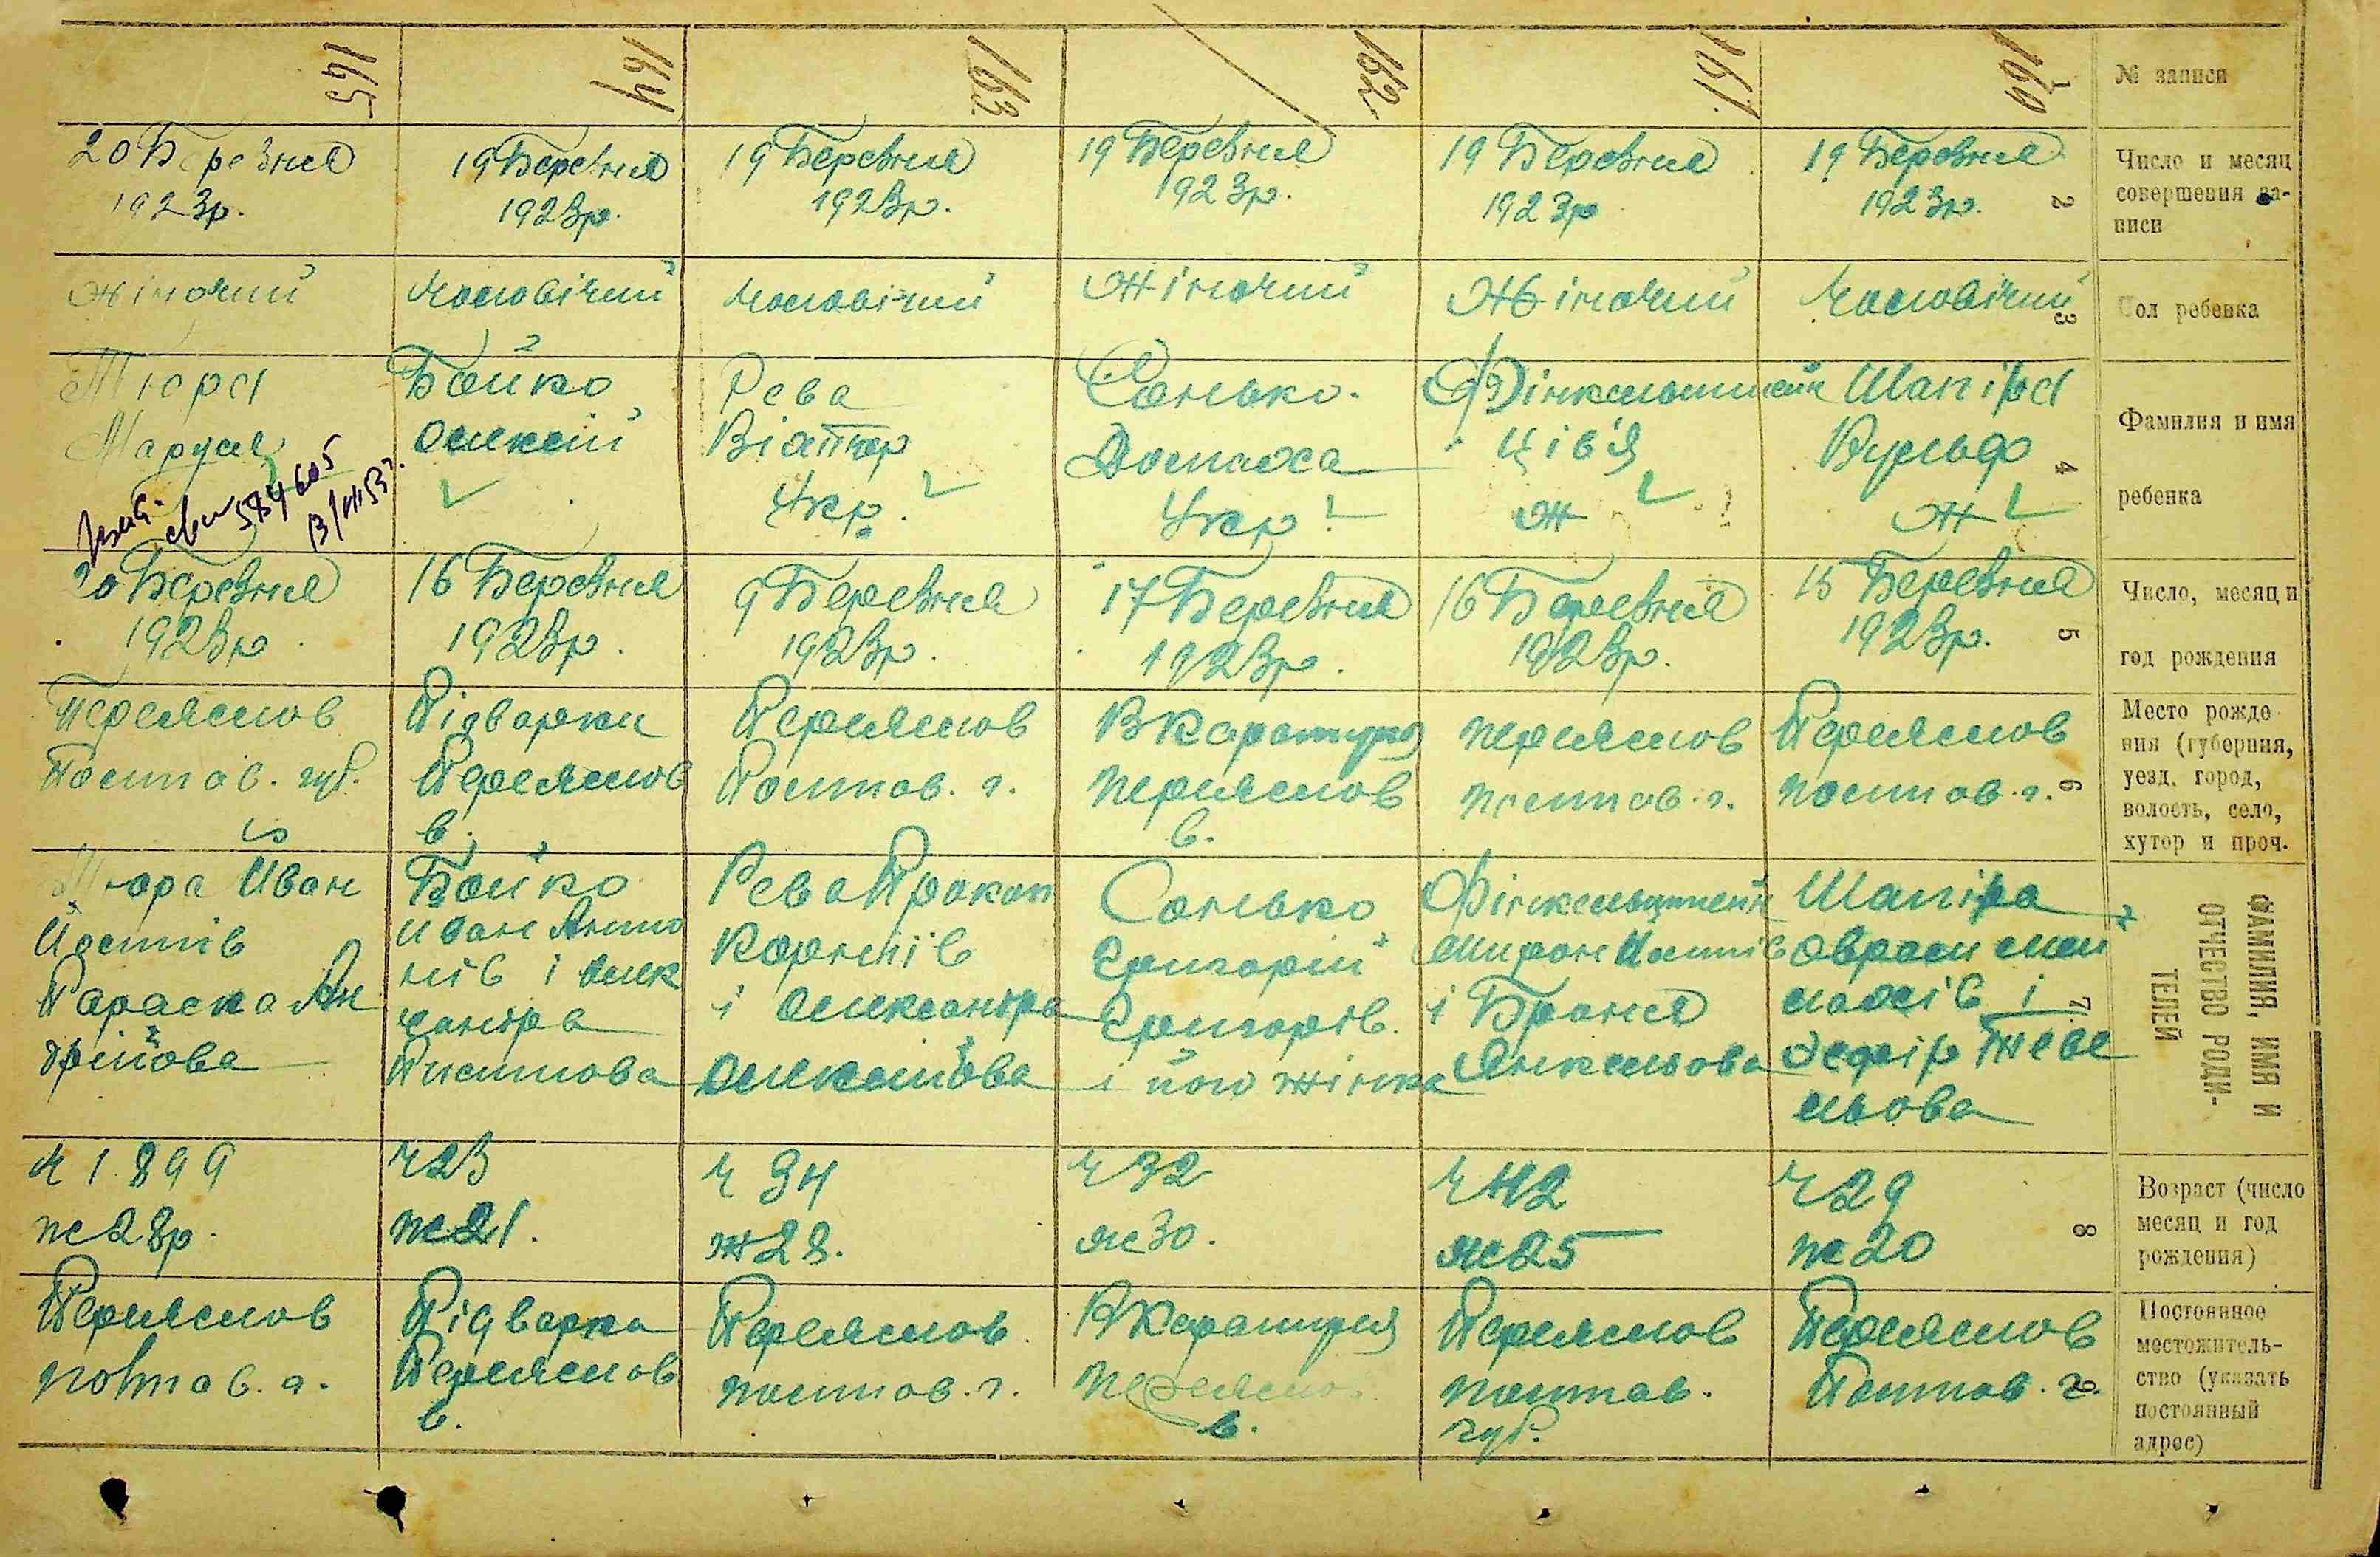 № записи
1
160
161
162
163
164
165
Число и месяц
совершения за-
писи
2
19 Березня
1923р.
19 Березня
1923р
19 Березня
1923р.
19 Березня
1923р.
19 Березня
1923р.
20 Березня
1923р.
Пол ребенка
3
Чоловічий
Жіночий
Жіночий
Чоловічий
Чоловічий
Жіночий
Фамилия и имя
ребенка
4
Шапіра
Вульф
Ж
Фінкельштейн
Ців'я
ж
Санько.
Домаха
Укр
Рева
Віктор
Укр.
Бойко
Олексій
Тюра
Маруся
584605
Число, месяц и
год рождения
5
15 Березня
1923р.
16 Березня
1923р.
17 Березня
1923р.
9 Березня
1923р.
16 Березня
1923р.
20 Березня
1923р
Место рожде
ния (губерния,
уезд, город,
волость, село,
хутор и проч.
6
Переяслов
Полтав. г.
Переяслов
Полтав. г.
В Каратуля
Переяслов
в.
Переяслов
Полтав. г.
Підварки
Переяслов
в.
Переяслов
Полтав. губ.
ФАМИЛИЯ, ИМЯ И
ОТЧЕСТВО РОДИ-
ТЕЛЕЙ
7
Шапіра
Овраам
і
Фінкельштейн
Мирон
і Броня
Янкельова
Санько
Григорій
Григорів.
і його жінка
Рева Прокоп
Корніїв
і Олександра
Олексіїова
Бойко
Иван Анто
нів і Олек
сандра
Тюра Иван
Параска Ан
дрійова
Возраст (число
месяц и год
рождения)
8
ч 29
ж 20
ч 42
ж 25
ч 32
ж 30.
ч 34
ж 28.
ч 23
ж 21.
ч 1899
ж 28р.
Постоянное
местожитель-
ство (указать
постоянный
адрес)
9
Переяслов
Полтав. г.
Переяслов
Полтав.
губ.
В Каратуля
Переяслов
в.
Переяслов
Полтав. г.
Підварки
Переяслов
в.
Переяслов
Полтав. г.